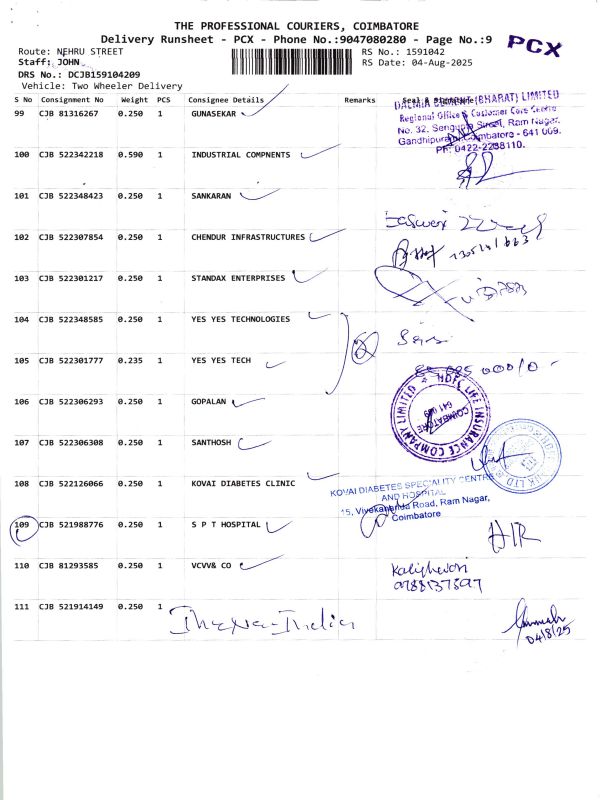 THE PROFESSIONAL COURIERS, COIMBATORE
Delivery Runsheet - PCX - Phone No.:9047080280 - Page No.:9
PCX
Route: NEHRU STREET
RS No.: 1591042
Staff: JOHN
RS Date: 04-Aug-2025
DRS No.: DCJB159104209
Vehicle: Two Wheeler Delivery
S No Consignment No Weight PCS Consignee Details Remarks Seal & Signature
99 CJB 81316267 0.250 1 GUNASEKAR
DALMIA CEMENT (BHARAT) LIMITED
Regional Office & Customer Care Centre
No. 32, Sengupta Street, Ram Nagar,
Gandhipuram, Coimbatore - 641 009.
PH: 0422-2238110.
100 CJB 522342218 0.590 1 INDUSTRIAL COMPNENTS
101 CJB 522348423 0.250 1 SANKARAN
102 CJB 522307854 0.250 1 CHENDUR INFRASTRUCTURES
103 CJB 522301217 0.250 1 STANDAX ENTERPRISES
104 CJB 522348585 0.250 1 YES YES TECHNOLOGIES
105 CJB 522301777 0.235 1 YES YES TECH
106 CJB 522306293 0.250 1 GOPALAN
HDFC LIFE INSURANCE COMPANY LIMITED
COIMBATORE
641 009
107 CJB 522306308 0.250 1 SANTHOSH
108 CJB 522126066 0.250 1 KOVAI DIABETES CLINIC
KOVAI DIABETES SPECIALITY CENTRE
AND HOSPITAL
15, Vivekananda Road, Ram Nagar,
Coimbatore
109 CJB 521988776 0.250 1 S P T HOSPITAL
110 CJB 81293585 0.250 1 VCVV& CO
111 CJB 521914149 0.250 1
04/8/25